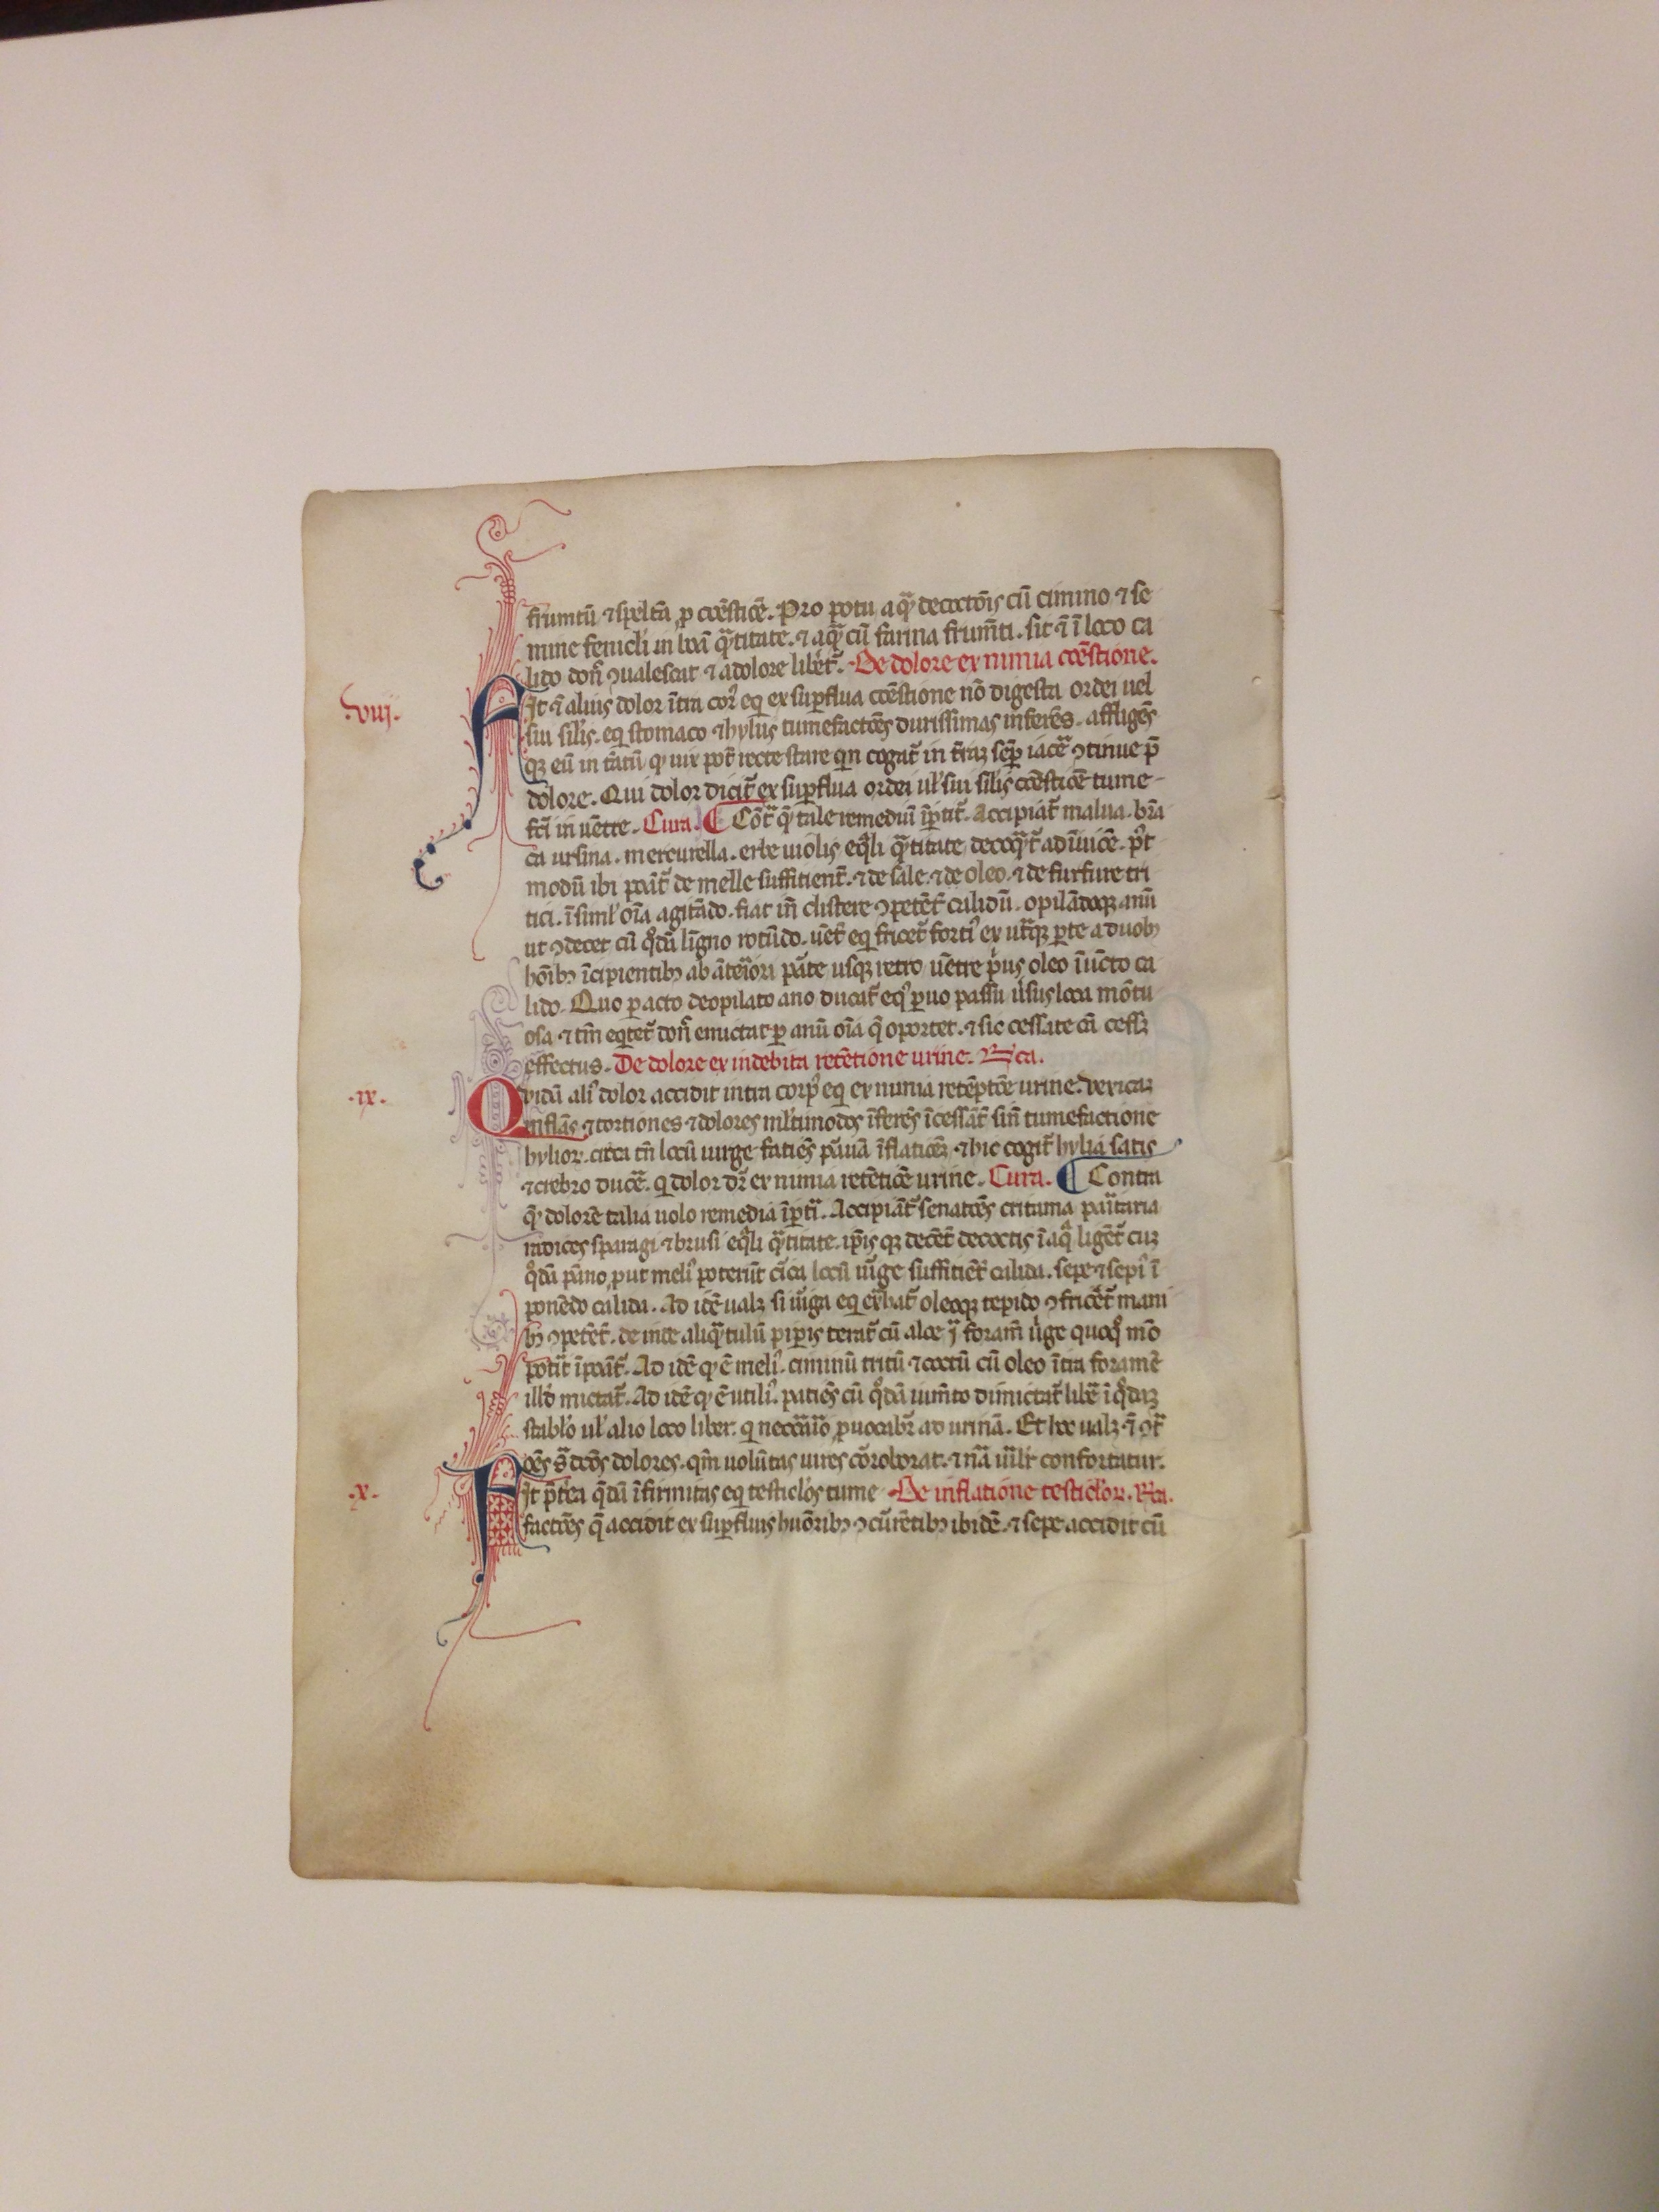 frumtū ⁊ speltā p comēstioē. Pro potu aqᷓ decoctōis cū cimino ⁊ se
mine feniĉli in boā qᷓtitate. ⁊ aqᷓ cū farina frum̄ti. sit ⁊ ī loco ca
lido don̄ ꝯualescat ⁊ a dolore libet᷑. De dolore ex nimia comēstione.
.viij.
Fit ⁊ alius dolor ītra cor̓ eq̓ ex suꝑflua comēstione nō digesta ordei uel
sui sil̓is. eq̓ stomaco ⁊ hylijs tumefactōes durissimas inferēs. affligēs
qꝫ eū in tātū qꝫ uix pot̄ recte stare qn̄ cogat᷑ in t̄raꝫ semꝑ iacē ꝯtinue p̄
dolore. Qui dolor dicit᷑ ex suꝑflua ordei ul̓ sui sil̓is comēstioē tume
fc̄i in uētre. Cura. ¶ Cōt̄ qᷓ tale remediū īꝑtit᷑. Accipiāt᷑ malua. brā
ca ursina. mercurella. erbe uiolis eq̓li qᷓtitate decoqᷓt᷑ adīuicē. p̓t
modū ibi poāt᷑ de melle suffitient̄. ⁊ de sale. ⁊ de oleo. ⁊ de furfure tri
tici. īsiml̓ oīa agitādo. fiat in̄ clistere ꝯpetēt̄ calidū. opilādoqꝫ anū
ut ꝯdecet cū qᵒdā ligno rotūdo. uēt̄ eq̓ fricet᷑ forti̓ ex utᷓqꝫ ꝑte a duobꝫ
hoīibꝫ īcipientibꝫ ab āteriori pāte usqꝫ retro uētre p̓us oleo īūcto ca
lido. Quo ꝑacto deopilato ano ducat᷑ eq̓ ꝑuo passu ūsus loca mōtu
osa ⁊ tm̄ eqtet᷑ don̄ emictat ꝑ anū oīa q̄ oportet. ⁊ sic cessāte cā cess̄
effectus. De dolore ex indebita retētione urine. Rᷓca.
.ix.
Quidā ali̓ dolor accidit intra corp̓ eq̓ ex nimia retēptōe urine. uexicaꝫ
inflās ⁊ tortiones ⁊ dolores ml̓timodos īferēs īcessāt̄ sin̄ tumefactione
hylioꝝ. circa tn̄ locū uirge faciēs pāuā īflatioēꝫ ⁊ hic cogit᷑ hylia satis
⁊ crebro ducē. q dolor dr̄ ex nimia retētiōe urine. Cura. ¶ Contra
qᷓ dolorē talia uolo remedia īꝑtī. Accipiāt᷑ senatōes critama paritaria
radices sparagi ⁊ brusi eq̓li qᷓtitate. ip̄is qꝫ decēt̄ decoctis ī aqᷓ ligēt᷑ cuꝫ
qᵒdā pāno put meli̓ poterūt circa locū uirge suffitiēt̄ calida. sepe ⁊ sepi̓ ī
ponēdo calida. Ad idē ualꝫ si uirga eq̓ exhat᷑ oleoqꝫ tepido ꝯfricēt᷑ mani
bꝫ ꝯpetēt̄. de inde aliqᷓtulū pip̓is terat᷑ cū aloe ī foram̄ uirge quoqᵒ mō
pot̄it īpoāt᷑. Ad idē qꝫ ē meli̓. ciminū tritū ⁊ coctū cū oleo ītra foramē
illd̓ mictat᷑. Ad idē qꝫ ē utili̓. patiēs cū qᵒdā iumto dimictat᷑ libē ī qᵒdaꝫ
stabl̓o ul̓ alio loco liber. q necc̄āīo ꝓuocabr̄ ad urinā. Et hec ualꝫ ⁊ ꝯt̄
oēs sᷓdcōs dolores. qm̄ uolūtas uires cōroborat. ⁊ nᷓā uīlr̄ confortatur.
.x.
Fit p̄t̓ea qᷓdā īfirmitas eq̓ testicl̓os tume De inflatione testicl̓oꝝ. Rᷓca.
factōes q̄ accidit ex suꝑfluis huōribꝫ ꝯcurētibꝫ ibidē. ⁊ sepe accidit cū